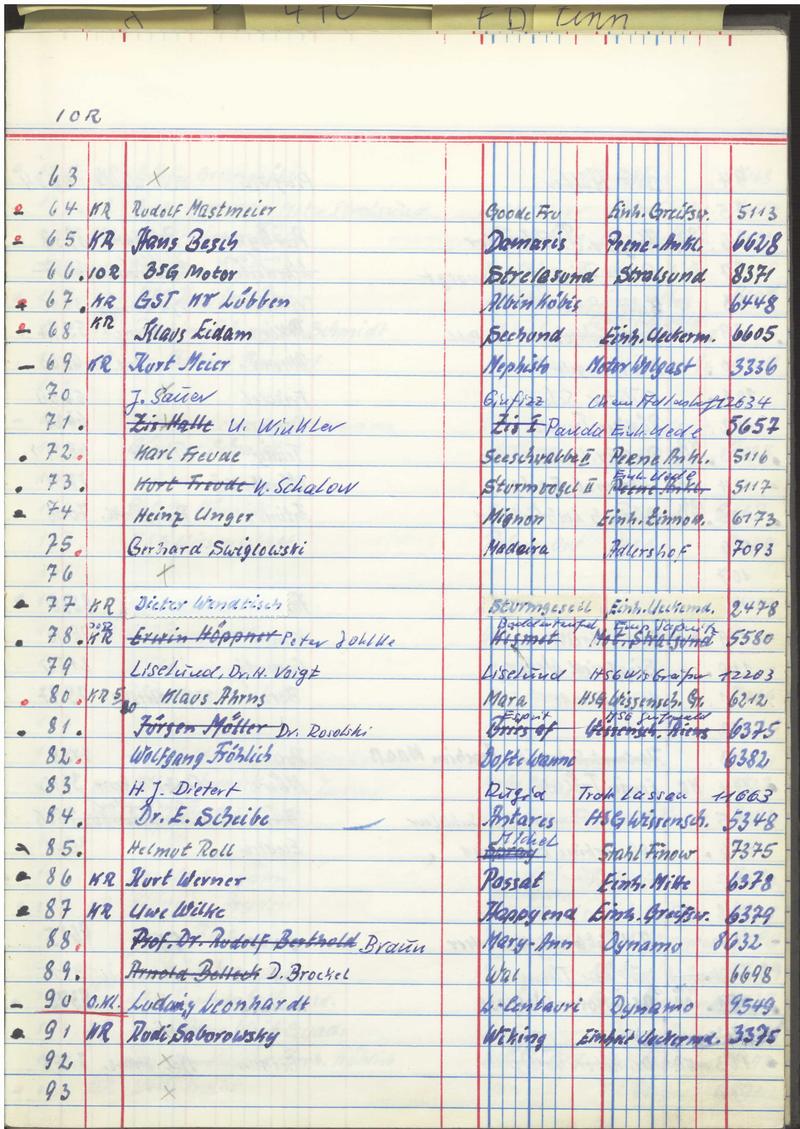 4 TC FD Finn
10R
63 x
64 KR Rudolf Mastmeier Goode Fru Einh. Greifsw. 5113
65 KR Hans Besch Damaris Peene-Ankl. 6628
66. 10R BSG Motor Strelasund Stralsund 8371
67. KR GST KV Lübben Albin Köbis 6448
68 KR Klaus Eidam Seehund Einh. Ueckerm. 6605
69 KR Kurt Meier Nephisto Motor Wolgast 3336
70 J. Sauer Ginfizz Chem. Adlershof 12634
71. Zis Halle U. Winkler Zis I Panda Einh. Uede 5657
72. Karl Freude Seeschwalbe II Peene Ankl. 5116
Einh. Uede
73. Kurt Freude K. Schalow Sturmvogel II Peene Ankl. 5117
74 Heinz Unger Mignon Einh. Zinnow. 6173
75. Gerhard Swiglowski Madeira Adlershof 7093
76 x
77 KR Dieter Wendtisch Sturmgesell Einh. Ueckemd. 2478
78. KR Erwin Höppner Peter Jahlke Kismet Mot. Stralsund 5580
79 Liselund, Dr. H. Voigt Liselund HSG Wis Greifsw 12203
80. KR 5/80 Klaus Ahrns Mara HSG Wissensch. Gr. 6212
Esprit HSG Greifswald
81. Jürgen Möller Dr. Rosolski Wissensch. 6375
82. Wolfgang Fröhlich 6382
83 H. J. Dietert Trak Lassan 11663
84. Dr. E. Scheibe Antares HSG Wissensch. 5348
Michel
85. Helmut Roll Spray Stahl Finow 7375
86 KR Kurt Werner Passat Einh. Mitte 6378
87 KR Uwe Wilke Happyend Einh. Greifsw. 6379
88. Prof. Dr. Rudolf Berthold Braun Mary-Ann Dynamo 8632
89. Arnold Belleck D. Brockel Wal 6698
90 O.Kl. Ludwig Leonhardt L-Centauri Dynamo 9549
91 KR Rudi Saborowsky Wiking Einheit Ueckermd. 3375
92 x
93 x